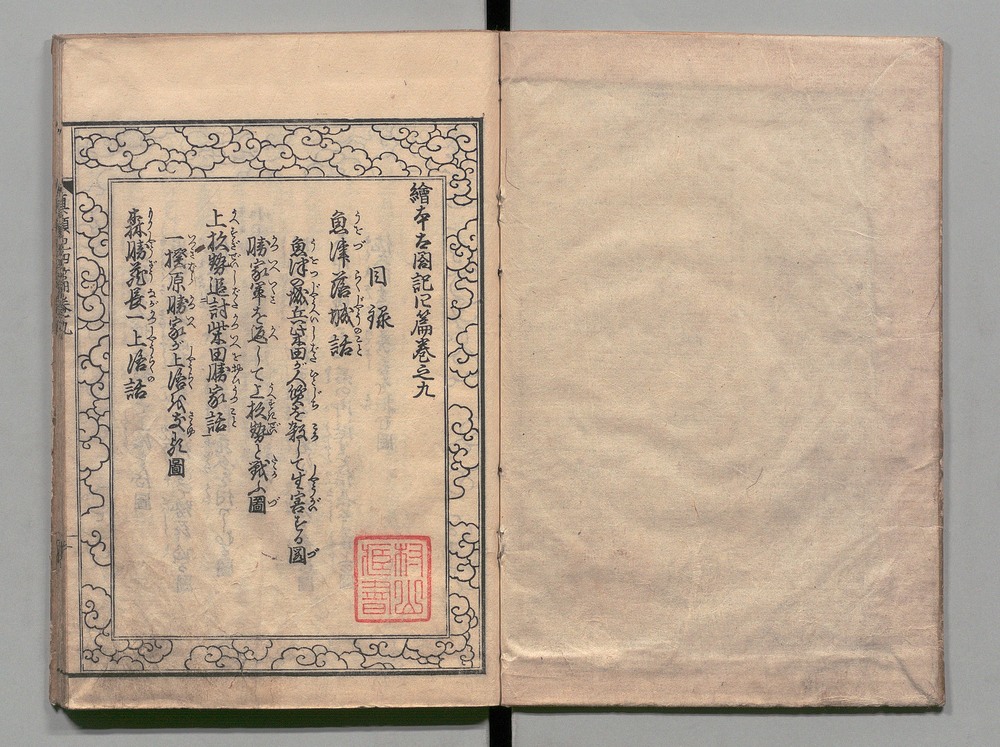 繪本太閤記四篇巻之九
目録
魚津落城話
魚津城兵柴田が人質を殺して生害する圖
勝家軍を返して上杉勢と戦ふ圖
上杉勢追討柴田勝家話
一揆原勝家が上洛を支る圖
森勝蔵長一上洛話
真顕記四篇巻九